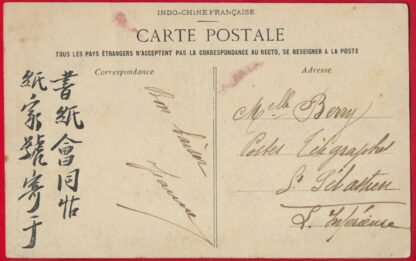 INDO-CHINE FRANÇAISE
CARTE POSTALE
TOUS LES PAYS ÉTRANGERS N'ACCEPTENT PAS LA CORRESPONDANCE AU RECTO, SE RESEIGNER A LA POSTE
Correspondance
Adresse
書紙會同帖
紙家號寄于
Bon baiser
Jeanne
Melle Berry
Postes Télégraphes
St Sébastien
L. Inférieure